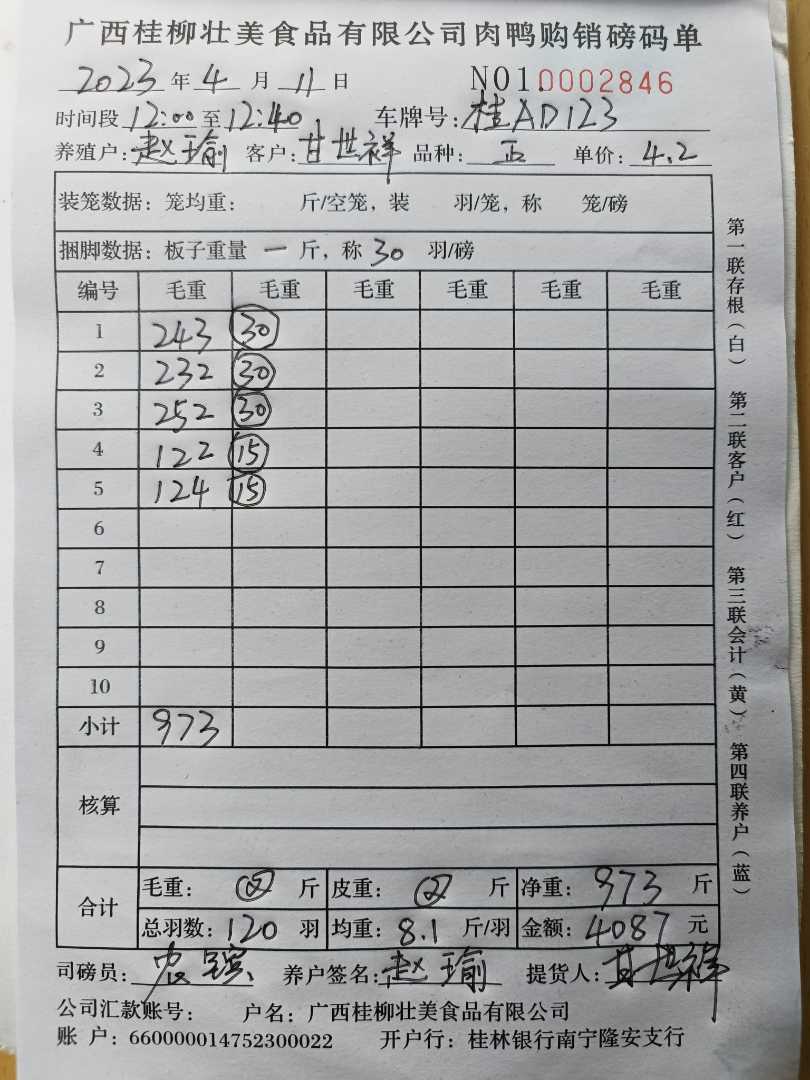 广西桂柳壮美食品有限公司肉鸭购销磅码单
2023年4月11日 NO1.0002846
时间段12:00至12:40 车牌号:桂AD123
养殖户:赵瑜 客户:甘世祥 品种: 正 单价:4.2
装笼数据:笼均重: 斤/空笼,装 羽/笼,称 笼/磅
捆脚数据:板子重量 一 斤,称30 羽/磅
编号 毛重 毛重 毛重 毛重 毛重 毛重
1 243 30
2 232 30
3 252 30
4 122 15
5 124 15
6
7
8
9
10
小计 973
核算
合计 毛重: 斤 皮重: 斤 净重:973 斤
总羽数:120 羽 均重:8.1 斤/羽 金额:4087 元
司磅员: 养户签名:赵瑜 提货人:甘世祥
公司汇款账号: 户名:广西桂柳壮美食品有限公司
账 户:660000014752300022 开户行:桂林银行南宁隆安支行
第一联存根(白) 第二联客户(红) 第三联会计(黄) 第四联养户(蓝)